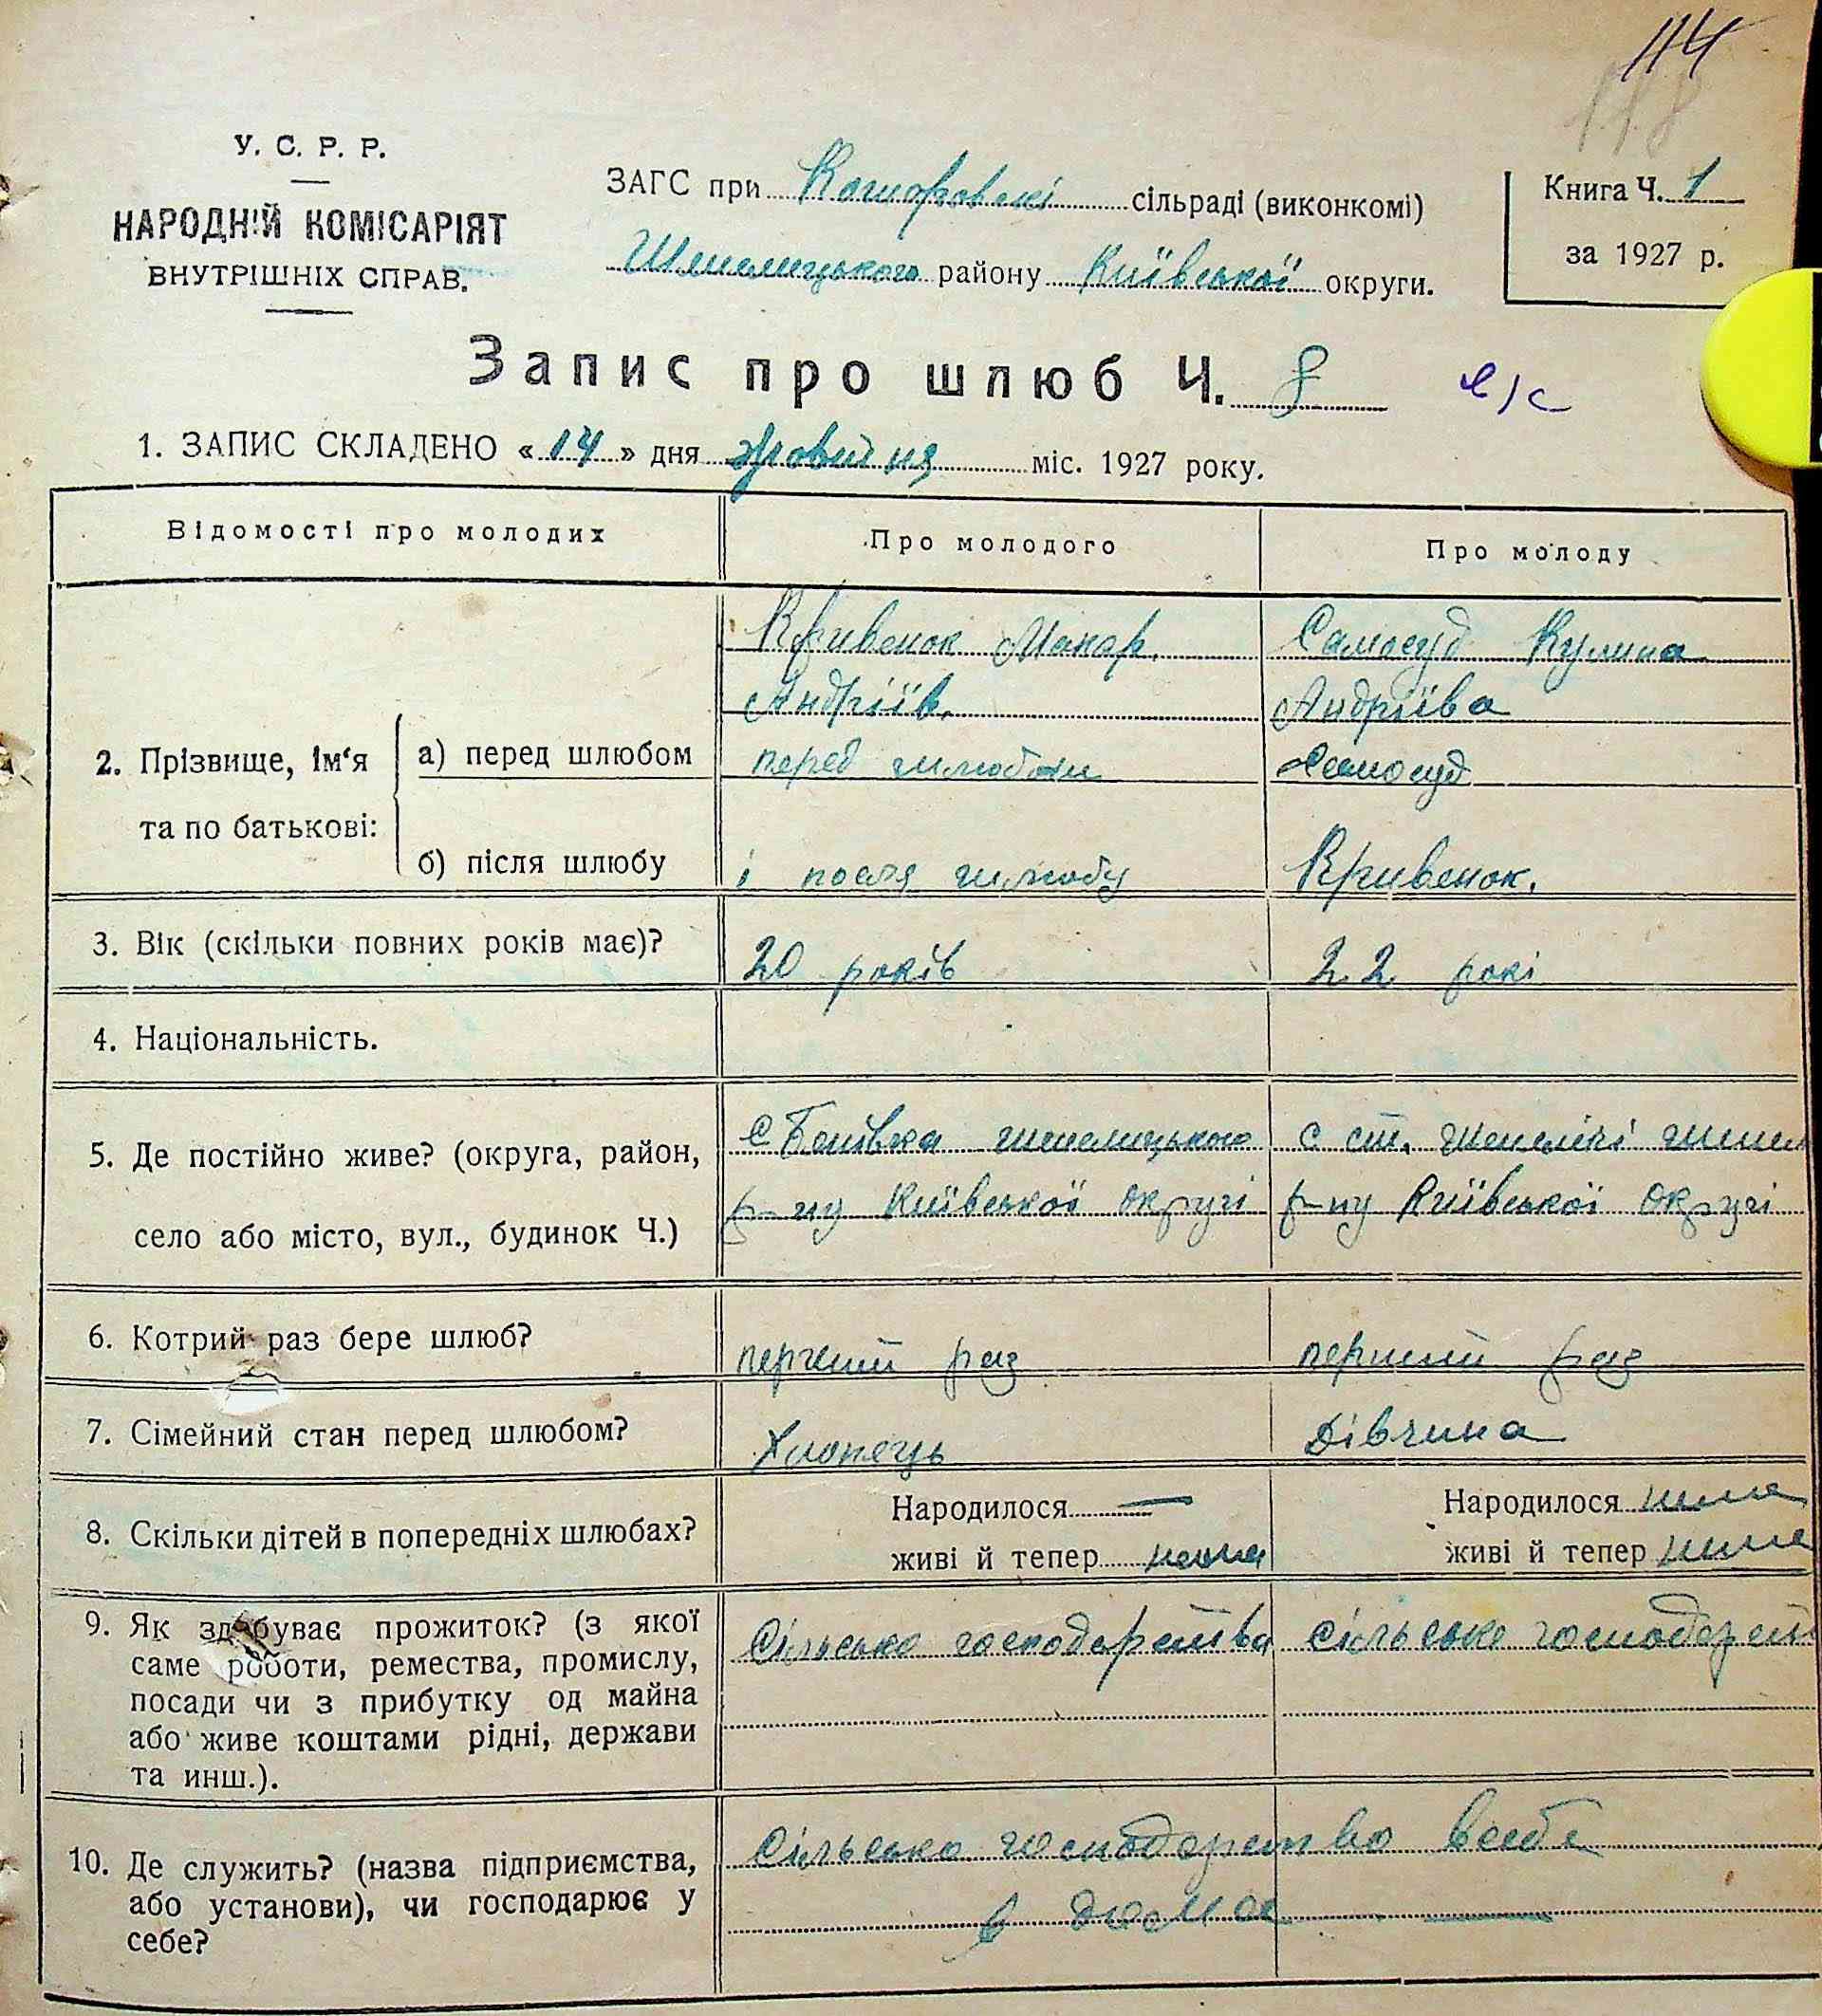 114
118
У. С. Р. Р.
НАРОДНІЙ КОМІСАРІЯТ
ВНУТРІШНІХ СПРАВ.
ЗАГС при Кошовській сільраді (виконкомі)
Шепелицького району Київської округи.
Книга Ч. 1
за 1927 р.
Запис про шлюб Ч. 8
1. ЗАПИС СКЛАДЕНО « 14 » дня жовтня міс. 1927 року.
Відомості про молодих
Про молодого
Про молоду
2. Прізвище, ім‘я та по батькові:
а) перед шлюбом
б) після шлюбу
Кривенок Макар.
Андріїв.
перед шлюбом
і посля шлюбу
Самосуд Кулина
Андріїва
Самосуд
Кривенок.
3. Вік (скільки повних років має)?
20 років
22 рокі
4. Національність.
5. Де постійно живе? (округа, район,
село або місто, вул., будинок Ч.)
с шепелицького
р-ну Київської округі
с ст. шепелічі шепел
р-ну Київської округі
6. Котрий раз бере шлюб?
перший раз
перший раз
7. Сімейний стан перед шлюбом?
Хлопець
Дівчина
8. Скільки дітей в попередніх шлюбах?
Народилося —
живі й тепер нема
Народилося нема
живі й тепер нема
9. Як здобуває прожиток? (з якої
саме роботи, ремества, промислу,
посади чи з прибутку од майна
або живе коштами рідні, держави
та инш.).
Сільсько господарства
сільсько господарст
10. Де служить? (назва підприємства,
або установи), чи господарює у
себе?
Сільсько господарство всебе
в дома —